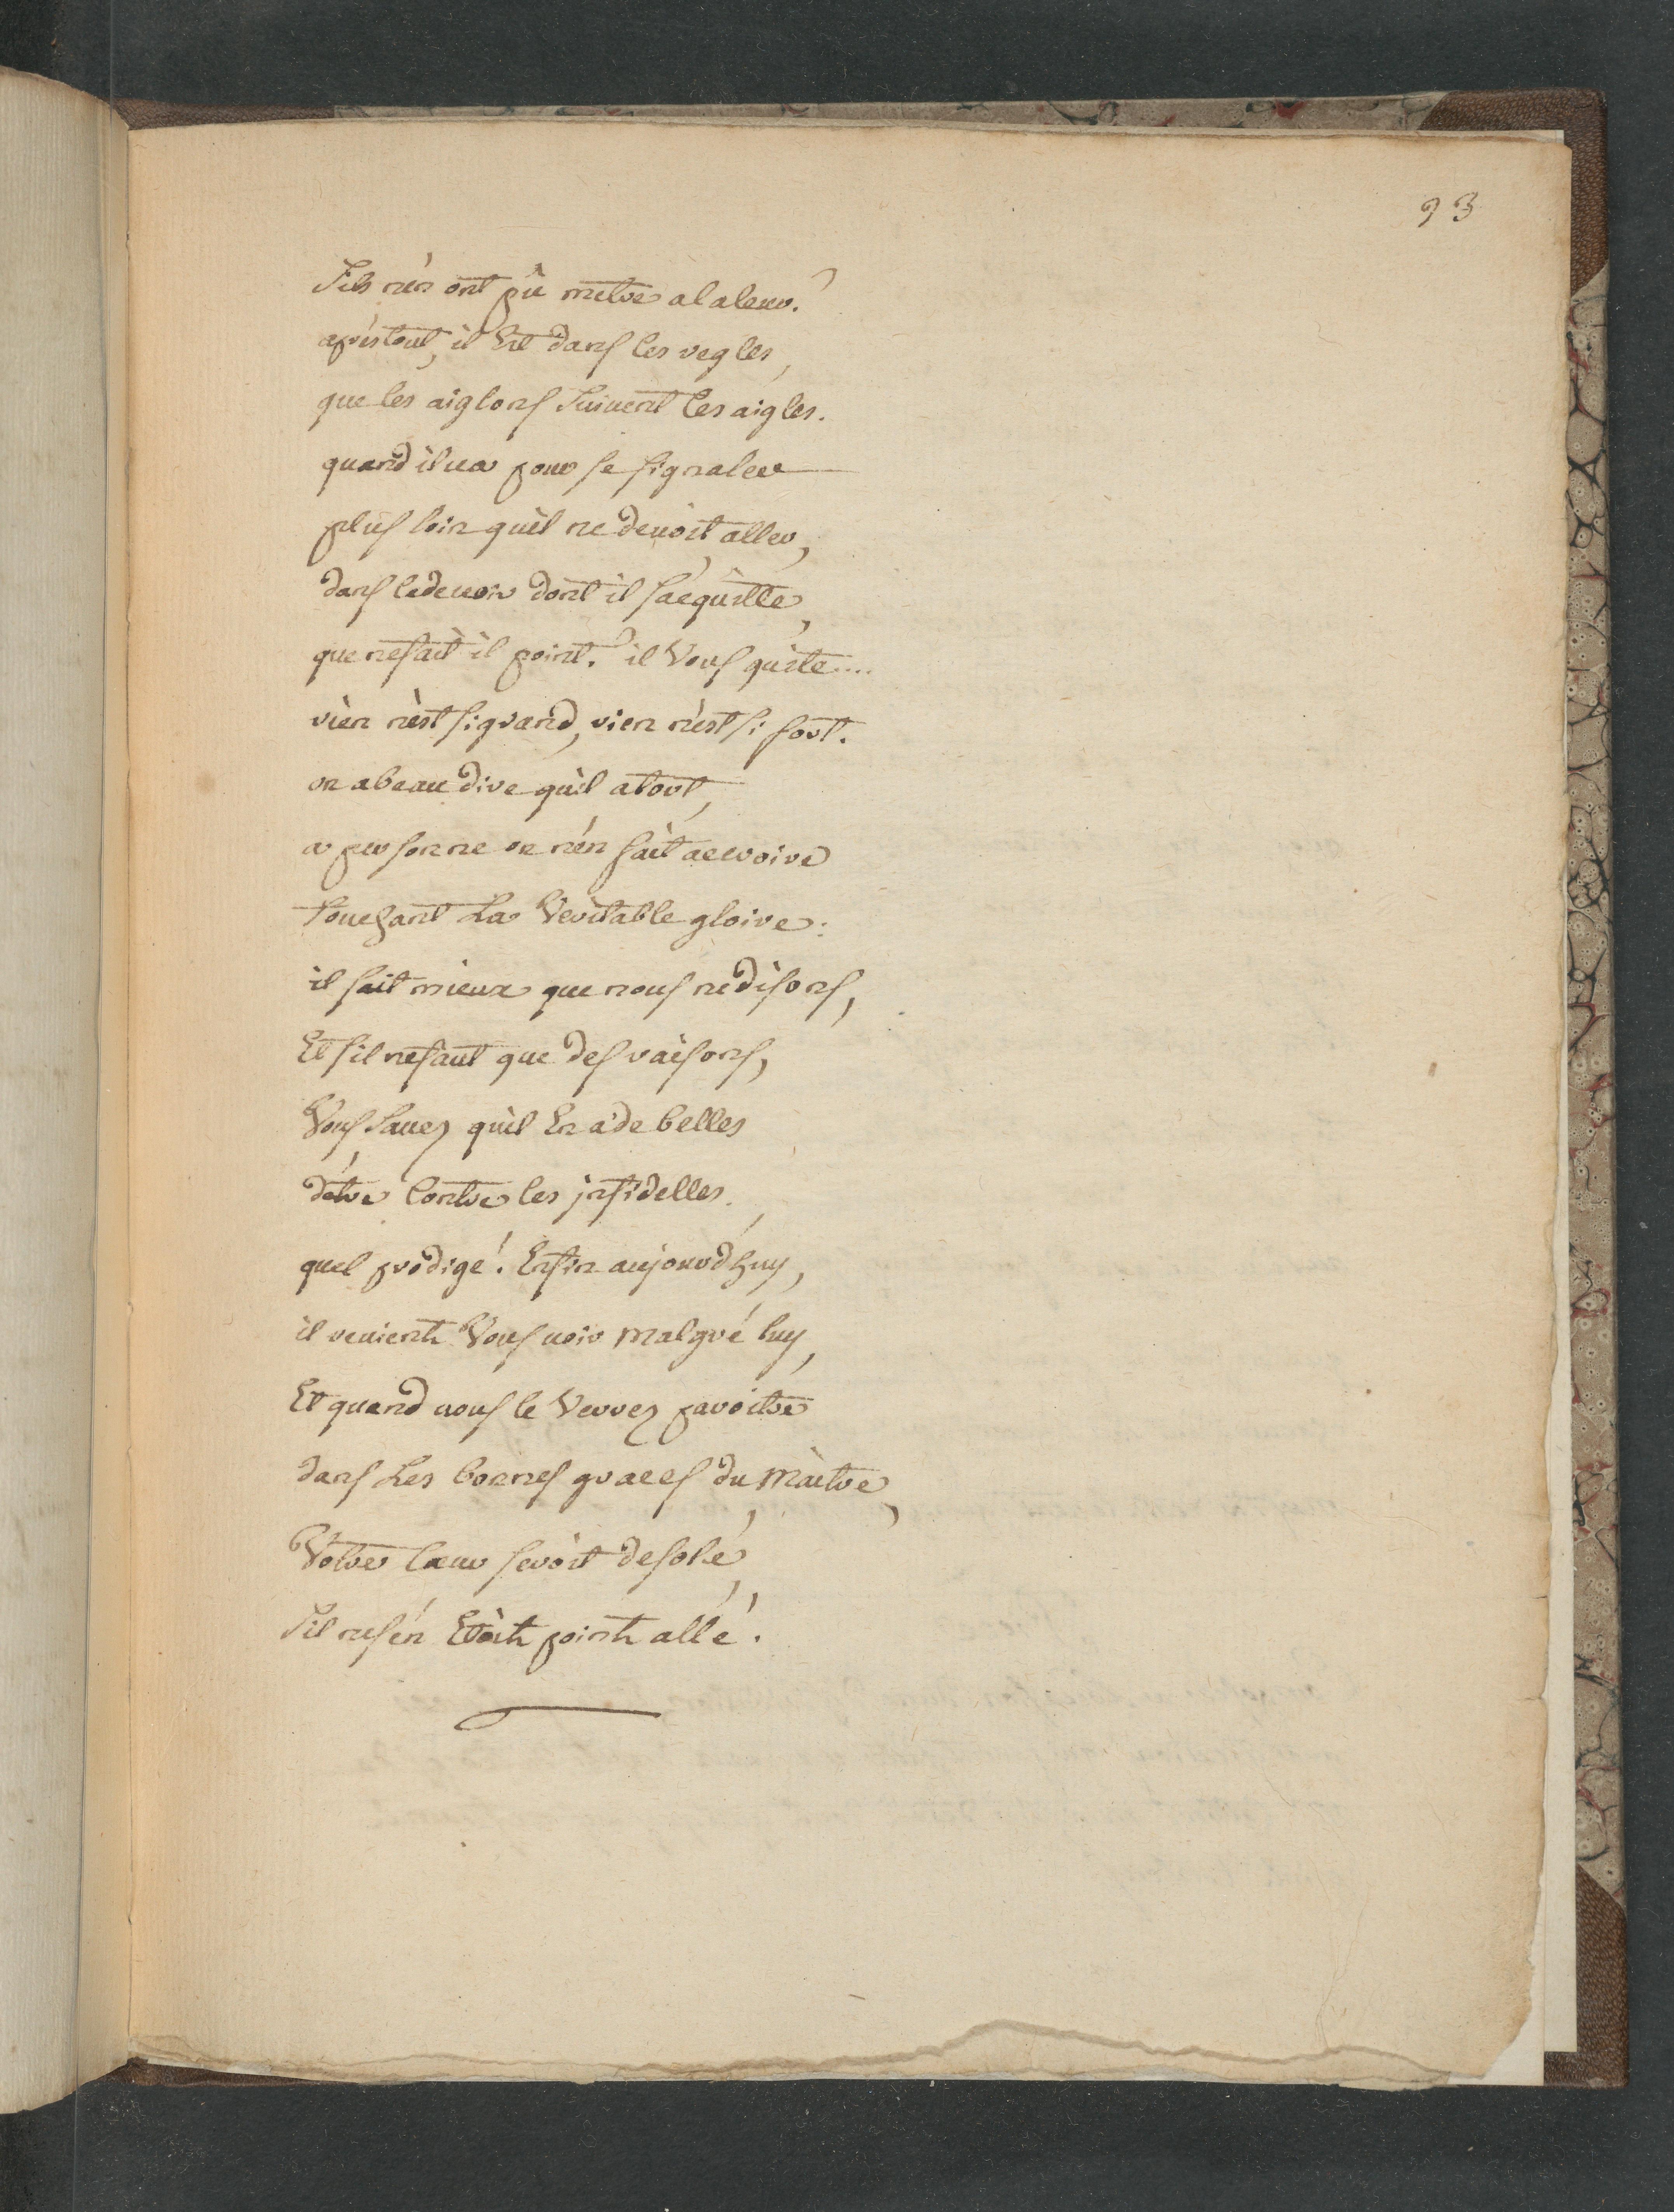 93
Sils nen ont pû metre alaleur?
aprés tout, il Est dans les regles,
que les aiglons Suivent les aigles.
quand il ua pour se signaler
plus loin quil ne deuoit aller,
dans le deuoir dont il s'acquitte,
que ne fait il point? il Vous quite....
rien nèst si grand, rien nèst si fort.
on abeau dire quil a tort,
a personne on nén fait accroire
Touchant La Veritable gloire:
il sait mieux que nous ne disons,
Et s'il ne faut que des raisons,
Vous Sauez quil En a de belles
détre Contre les jnfidelles.
quel prodige! Enfin aujourdhuy,
il reuient Vous uoir malgré luy,
Et quand uous le Verrez paroitre
dans Les bonnes graces du Maitre,
Votre Cœur seroit desolé,
Sil ne s'én Etoit point allé.